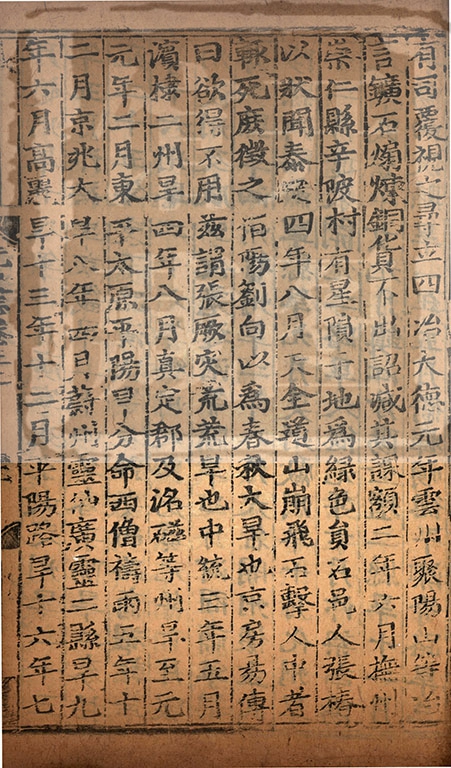 有司覆視之尋立四冶大德元年雲州聚陽山等冶
言鑛石煽煉銅貨不出詔減其課額二年六月撫州
崇仁縣辛陂村有星隕于地爲綠色員石邑人張椿
以狀聞泰定四年八月天全道山崩飛石擊人中者
輒死庶徵之恒暘劉向以爲春秋大旱也京房易傳
曰欲得不用茲謂張厥災荒荒旱也中統三年五月
濱棣二州旱四年八月真定郡及洺磁等州旱至元
元年二月東平太原平陽旱分命西僧禱雨五年十
二月京兆大旱八年四月蔚州靈仙廣靈二縣旱九
年六月高麗旱十三年十二月平陽路旱十六年七